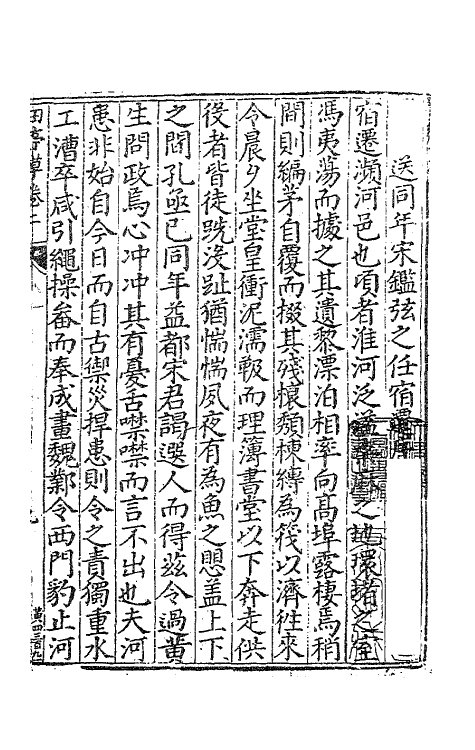 送同年宋鑑弦之任宿遷序
宿遷瀕河邑也頃者淮河泛溢之地環堵之室
馮夷蕩而據之其遺黎漂泊相率向髙埠露棲焉稍
間則編茅自覆而掇其殘榱頹棟縛為筏以濟徃來
令晨夕坐堂皇衝泥濡骭而理簿書堂以下奔走供
後者皆徒跣沒趾猶惴惴夙夜有為魚之愳盖上下
之閒孔亟已同年益都宋君謁選人而得茲令過黄
生問政焉心冲冲其有憂舌噤噤而言不出也夫河
患非始自今日而自古禦災捍患則令之責獨重水
工漕卒咸引繩操畚而奉成畫魏鄴令西門豹止河
卷二